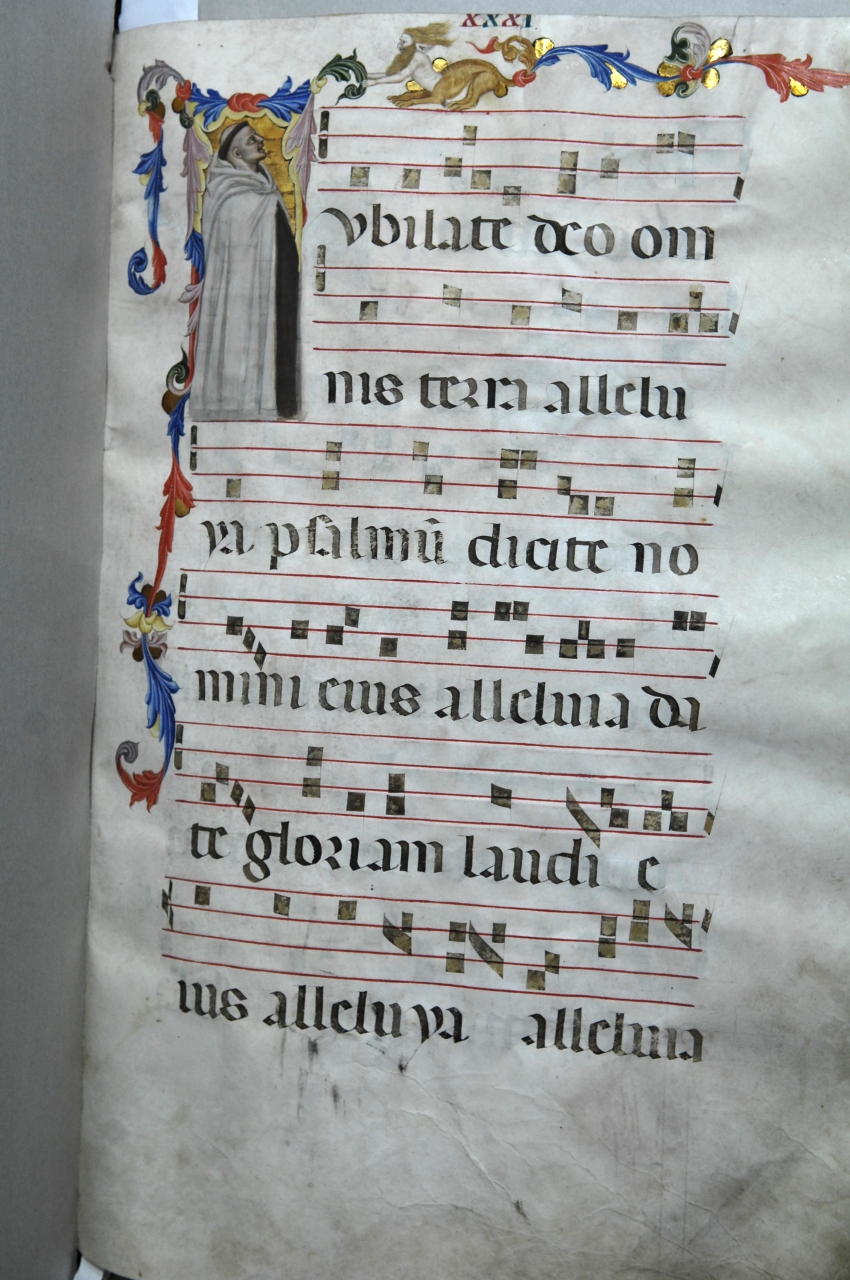 XXXI
Iubilate deo om
nis terra allelu
ya psalmū dicite no
mini eius alleluia da
te gloriam laudi e
ius alleluya alleluia